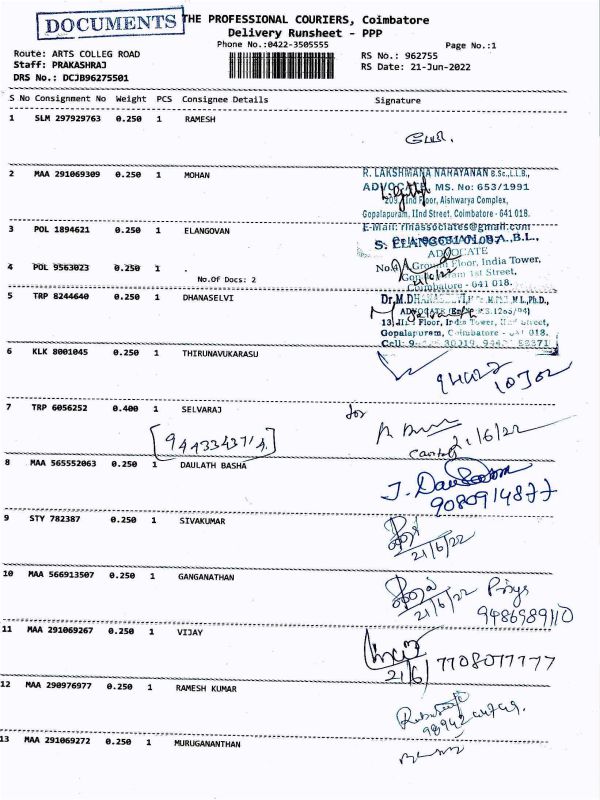 DOCUMENTS
THE PROFESSIONAL COURIERS, Coimbatore
Delivery Runsheet - PPP
Phone No.:0422-3505555
Page No.:1
Route: ARTS COLLEG ROAD
RS No.: 962755
Staff: PRAKASHRAJ
RS Date: 21-Jun-2022
DRS No.: DCJB96275501
S No Consignment No Weight PCS Consignee Details Signature
1 SLM 297929763 0.250 1 RAMESH
2 MAA 291069309 0.250 1 MOHAN
R. LAKSHMANA NARAYANAN B.Sc.,L.L.B.,
ADVOCATE, MS. No: 653/1991
209, IInd Floor, Aishwarya Complex,
Gopalapuram, IInd Street, Coimbatore - 641 018.
E-Mail: rlnassociates@gmail.com
3 POL 1894621 0.250 1 ELANGOVAN
S. ELANGOVAN, B.A.,B.L.,
ADVOCATE
Ground Floor, India Tower,
1st Street,
Coimbatore - 641 018.
21/6/22
4 POL 9563023 0.250 1 .
No.Of Docs: 2
5 TRP 8244640 0.250 1 DHANASELVI
Dr.M.DHANASELVI, M.L.,Ph.D.,
ADVOCATE
13, Floor, India Tower, IInd Street,
Gopalapuram, Coimbatore - 641 018.
Cell:
6 KLK 8001045 0.250 1 THIRUNAVUKARASU
7 TRP 6056252 0.400 1 SELVARAJ
for
21/6/22
9443343714
8 MAA 565552063 0.250 1 DAULATH BASHA
9080914877
9 STY 782387 0.250 1 SIVAKUMAR
21/6/22
10 MAA 566913507 0.250 1 GANGANATHAN
21/6/22 Priya
9486989110
11 MAA 291069267 0.250 1 VIJAY
21/6/ 7708077777
12 MAA 290976977 0.250 1 RAMESH KUMAR
13 MAA 291069272 0.250 1 MURUGANANTHAN